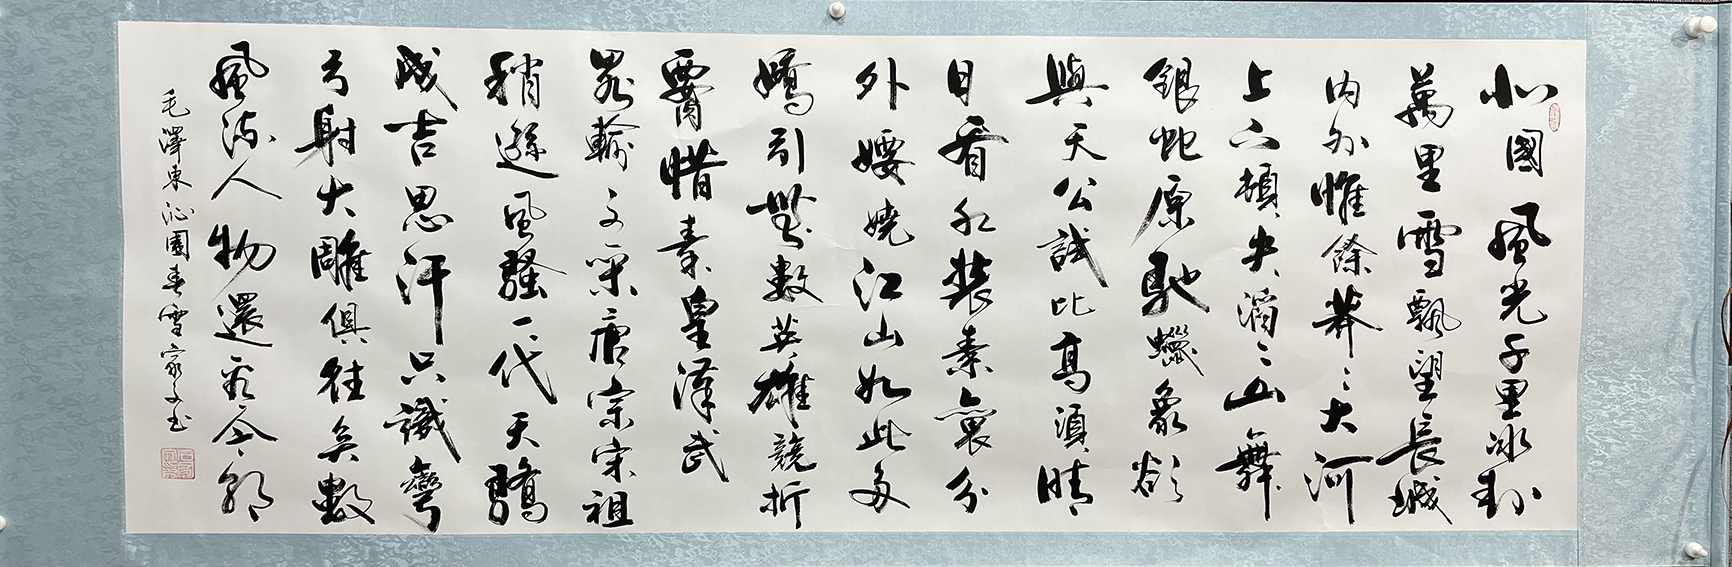 北國風光千里冰封
萬里雪飄望長城
内外惟餘莽〻大河
上下頓失滔〻山舞
銀蛇原馳蠟象欲
與天公試比高須晴
日看紅裝素裹分
外嬈江山如此多
嬌引無數英雄競折
腰惜秦皇漢武
略輸文采唐宗宋祖
稍遜風騷一代天驕
成吉思汗只識彎
弓射大雕俱往矣數
風流人物還看今朝
毛澤東沁園春雪家文书